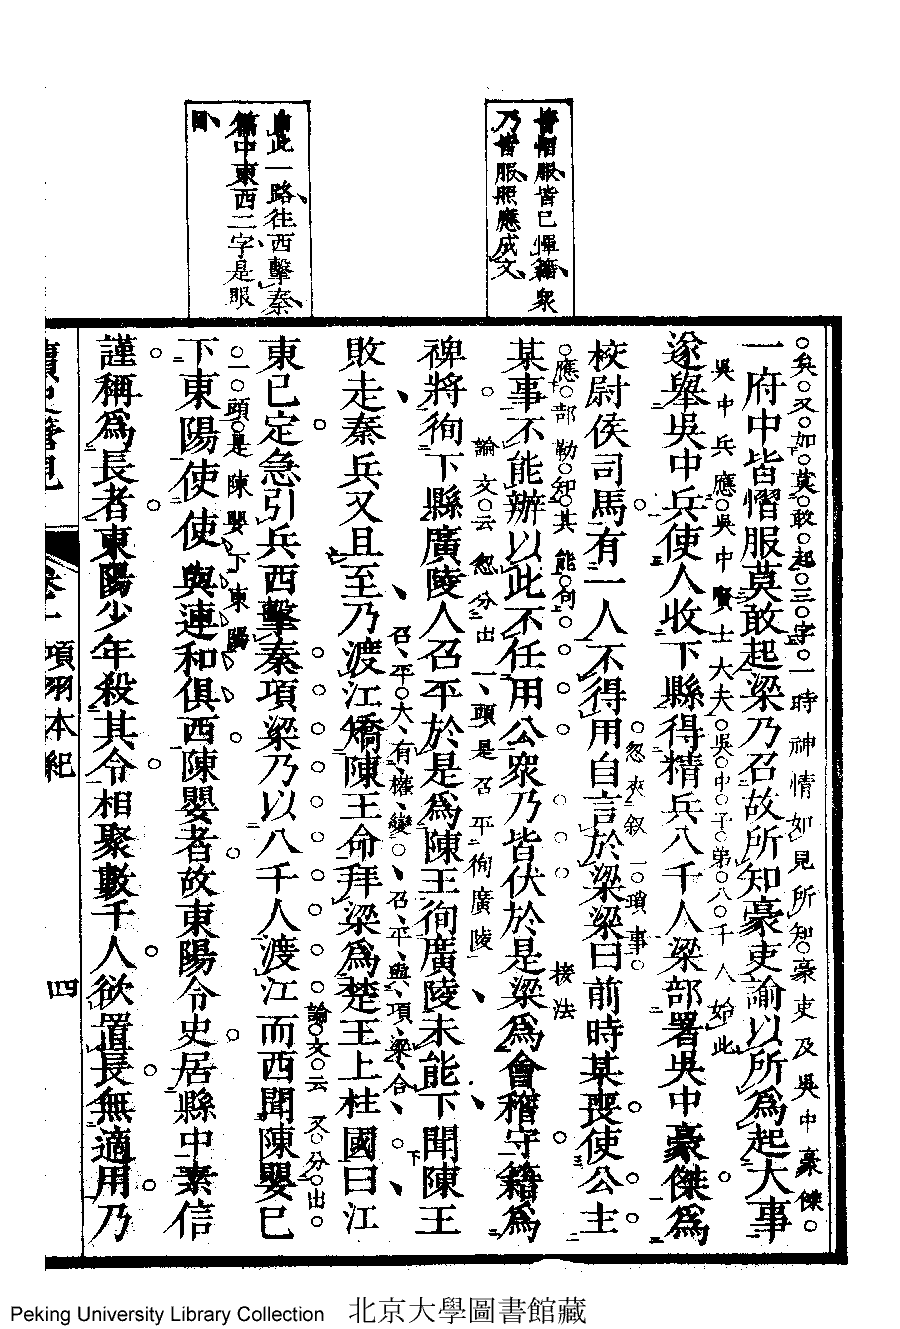 皆慴服皆已憚籍衆
乃皆服照應成文
由此一路往西擊秦
篇中東西二字是眼
目
矣又如莫敢起三字一時神情如見所知豪吏及吳中豪傑
一府中皆慴服莫敢起梁乃召故所知豪吏諭以所爲起大事
吳中兵應吳中賢士大夫吳中子弟八千人始此
遂舉吳中兵使人收下縣得精兵八千人梁部署吳中豪傑爲
忽夾叙一瑣事
校尉侯司馬有一人不得用自言於梁梁曰前時某喪使公主
應部勒知其能句 接法
某事不能辦以此不任用公衆乃皆伏於是梁爲會稽守籍爲
論文云忽分出一頭是召平徇廣陵
裨將徇下縣廣陵人召平於是爲陳王徇廣陵未能下聞陳王
召平大有權變召平與項梁合下
敗走秦兵又且至乃渡江矯陳王命拜梁爲楚王上柱國曰江
論文云又分出
東已定急引兵西擊秦項梁乃以八千人渡江而西聞陳嬰已
一頭是陳嬰下東陽
下東陽使使與連和俱西陳嬰者故東陽令史居縣中素信
謹稱爲長者東陽少年殺其令相聚數千人欲置長無適用乃
讀史管見 卷一 項羽本紀 四
Peking University Library Collection 北京大學圖書館藏